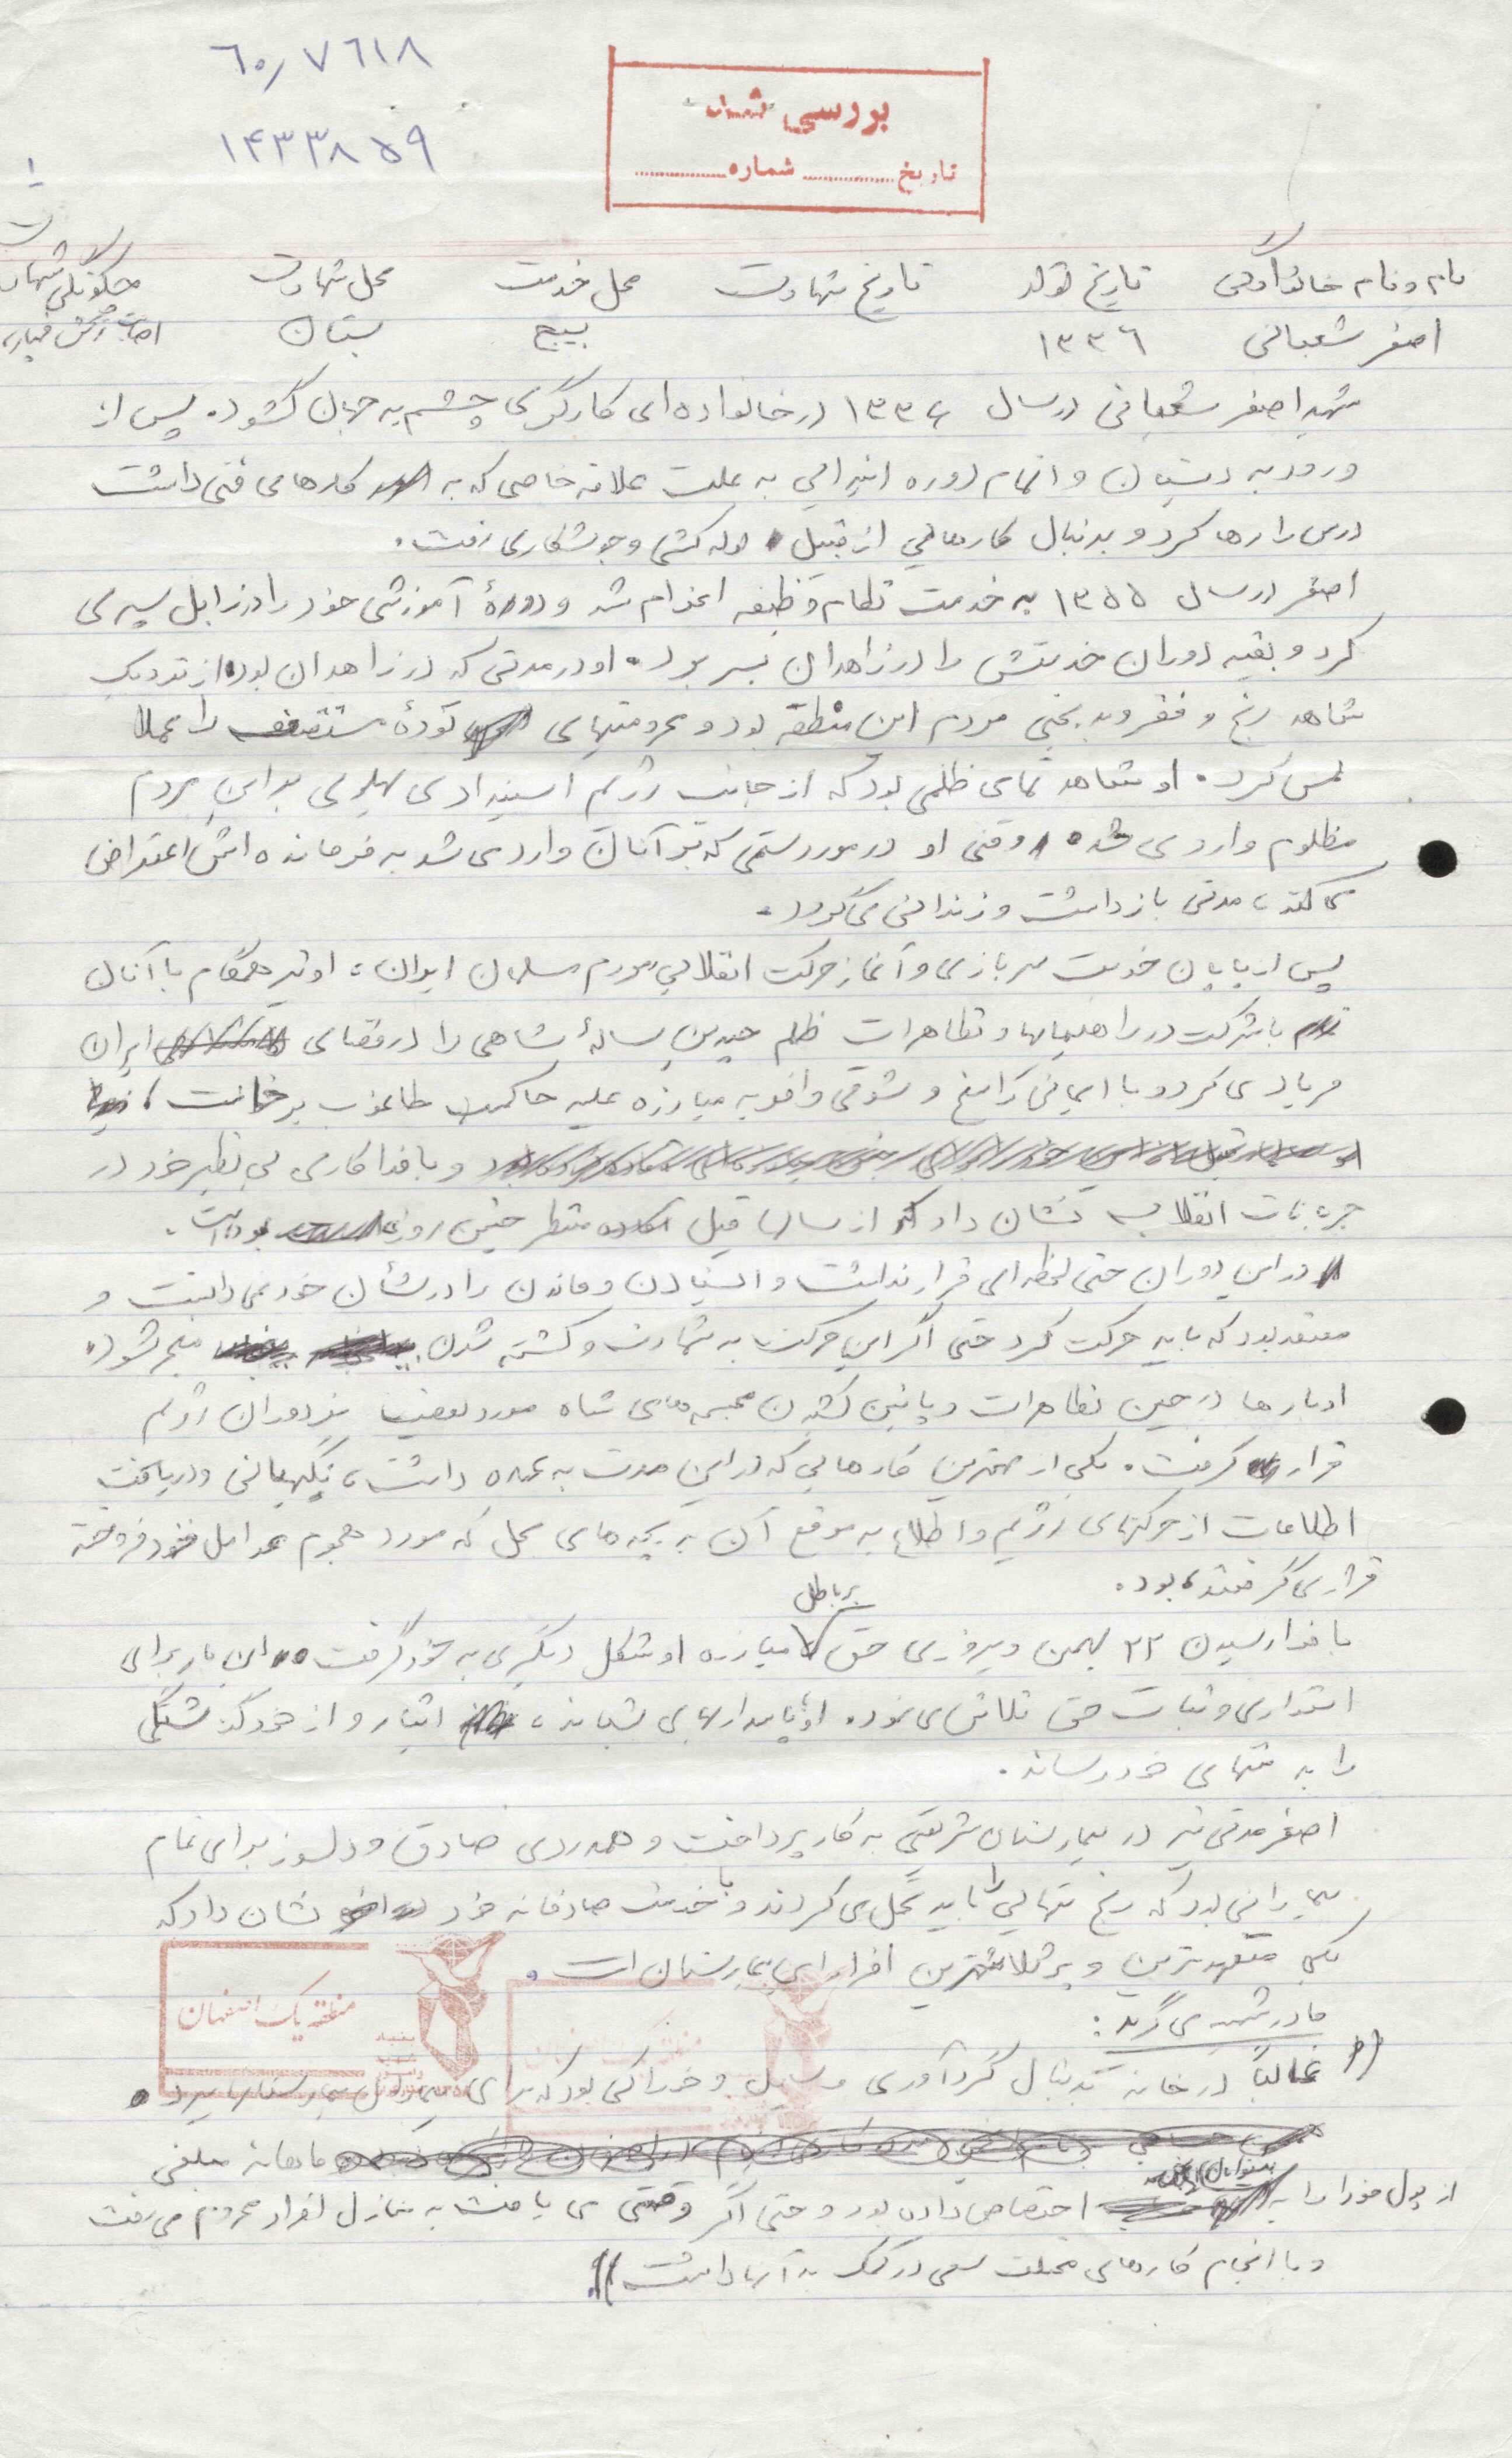 ۶۰٫۷۶۱۸
۱۴۳۳۸۵۹
۱
بررسی شد
تاریخ ............ شماره ............
نام و نام خانوادگی تاریخ تولد تاریخ شهادت محل خدمت محل شهادت چگونگی شهادت
اصغر شعبانی ۱۳۳۶ بسیج بستان اصابت ترکش خمپاره
شهید اصغر شعبانی در سال ۱۳۳۶ در خانواده ای کارگری چشم به جهان گشود. پس از
ورود به دبستان و اتمام دوره ابتدائی به علت علاقه خاصی که به کارهای فنی داشت
درس را رها کرد و بدنبال کارهائی از قبیل لوله کشی و جوشکاری رفت.
اصغر در سال ۱۳۵۵ به خدمت نظام وظیفه اعزام شد و دورهٔ آموزشی خود را در زابل سپری
کرد و بقیه دوران خدمتش را در زاهدان بسر برد. او در مدتی که در زاهدان بود از نزدیک
شاهد رنج و فقر و بدبختی مردم این منطقه بود و محرومیتهای تودهٔ مستضعف را عملا
لمس کرد. او شاهد تمامی ظلمی بود که از جانب رژیم استبدادی پهلوی بر این مردم
مظلوم وارد می شد. وقتی او در مورد ستمی که بر آنان وارد می شد به فرمانده اش اعتراض
می کند، مدتی بازداشت و زندانی می گردد.
پس از پایان خدمت سربازی و آغاز حرکت انقلابی مردم مسلمان ایران، او نیز همگام با آنان
با شرکت در راهپیمایها و تظاهرات ظلم چندین سالهٔ شاهی را در فضای ایران
فریاد می کرد و با ایمانی راسخ و شوقی وافر به مبارزه علیه حاکمیت طاغوت برخاست،
و با فداکاری بی نظیر خود در
جریانات انقلاب نشان داد که از سالها قبل منتظر چنین روزی بوده است.
در این دوران حتی لحظه ای قرار نداشت و ایستادن و ماندن را در شأن خود نمی دانست و
معتقد بود که باید حرکت کرد حتی اگر این حرکت به شهادت و کشته شدن منجر شود.
او بارها در حین تظاهرات و پائین کشیدن مجسمه های شاه مورد تعقیب مزدوران رژیم
قرار گرفت. یکی از مهمترین کارهایی که در این مدت به عهده داشت، نگهبانی و دریافت
اطلاعات از حرکتهای رژیم و اطلاع به موقع آن به بچه های محل که مورد هجوم عوامل خود فروخته
قرار می گرفتند، بود.
با فرا رسیدن ۲۲ بهمن و پیروزی حق بر باطل مبارزه او شکل دیگری به خود گرفت. این بار برای
استواری و ثبات حق تلاش می نمود. او پاسداریهای شبانه، ایثار و از خود گذشتگی
را به منتهای خود رساند.
اصغر مدتی نیز در بیمارستان شریعتی به کار پرداخت و همدردی صادق و دلسوز برای تمام
بیمارانی بود که رنج تنهائی را باید تحمل می کردند و با خدمت صادقانه خود نشان داد که
یکی متعهدترین و پرتلاشترین افراد این بیمارستان است.
مادر شهید می گوید:
(( غالباً در خانه بدنبال گردآوری وسایل و خوراکی بود که برای بیماران بیمارستان ببرد.
ماهانه مبلغی
از پول خود را به اختصاص داده بود و حتی اگر وقتی می یافت به منازل افراد محروم می رفت
و با انجام کارهای مختلف سعی در کمک به آنها داشت ))
منطقه یک اصفهان